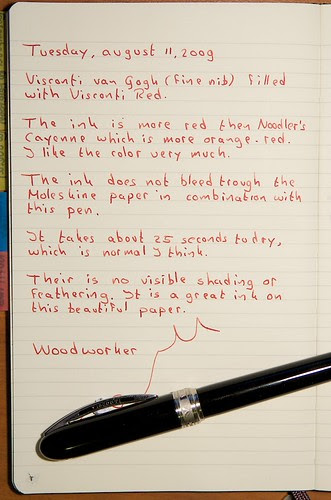 Tuesday, august 11, 2009
Visconti van Gogh (fine nib) filled
with Visconti Red.
The ink is more red then Noodler's
Cayenne which is more orange-red.
I like the color very much.
The ink does not bleed trough the
Moleskine paper in combination with
this pen.
It takes about 25 seconds to dry,
which is normal I think.
Their is no visible shading or
feathering. It is a great ink on
this beautiful paper.
Woodworker